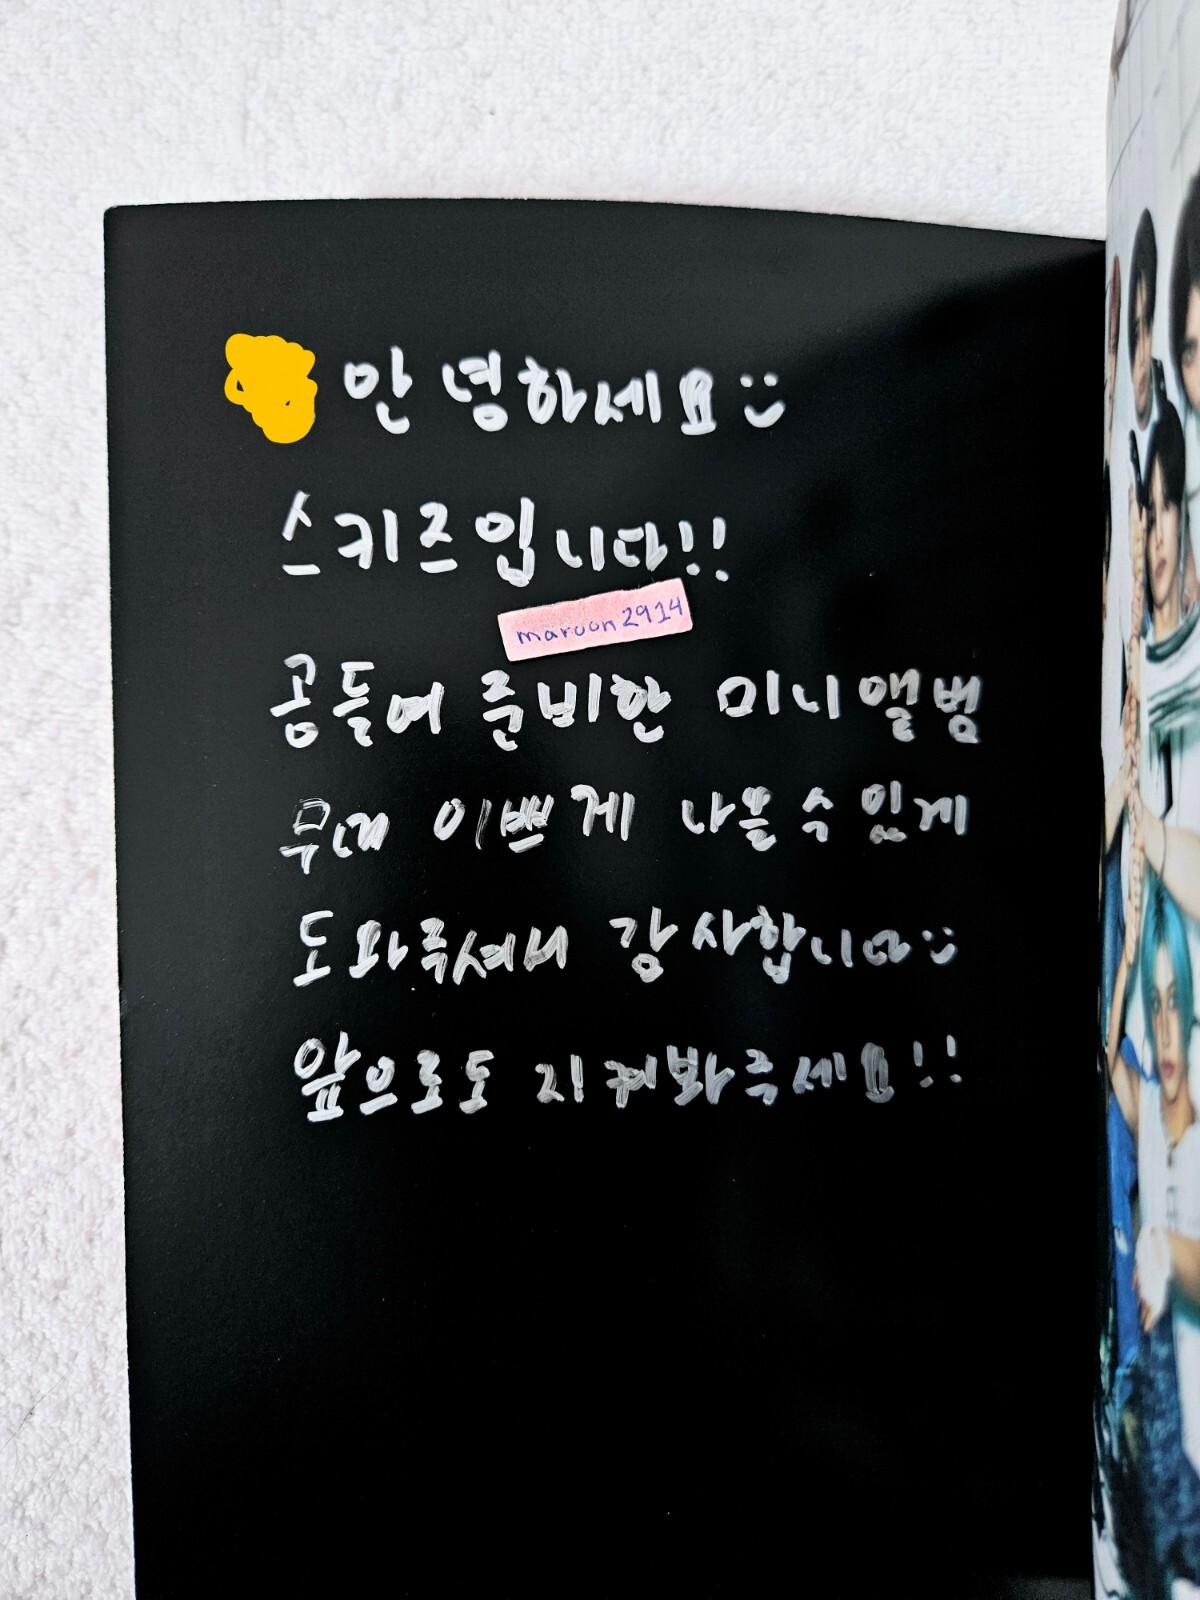 안녕하세요 :)
스키즈입니다!!
maroon2914
공들여 준비한 미니앨범
무대 이쁘게 나올 수 있게
도와주셔서 감사합니다 :)
앞으로도 지켜봐주세요!!